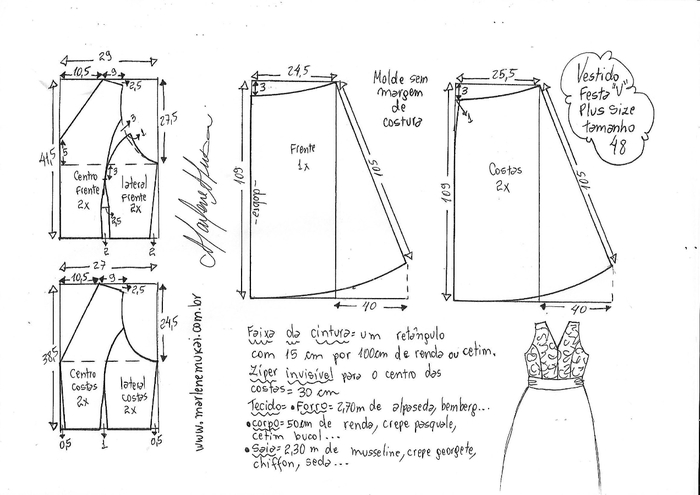 29
10,5
9
2,5
3
1
27,5
41,5
5
3
2,5
Centro
frente
2x
lateral
frente
2x
2
2
27
10,5
9
2,5
24,5
38,5
Centro
costas
2x
lateral
costas
2x
0,5
1
0,5
Marlene Mukai
www.marlenemukai.com.br
24,5
3
Frente
1x
109
-dobra-
105
40
Molde sem
margem
de
costura
25,5
3
1
Costas
2x
109
105
40
Vestido
Festa "V"
Plus Size
tamanho
48
Faixa da cintura= um retângulo
com 15 cm por 100cm de renda ou cetim.
Zíper invisível para o centro das
costas= 30 cm
Tecido= •Forro= 2,70m de alpaseda, bemberg...
•corpo= 50cm de renda, crepe pasquale,
cetim bucol...
•Saia= 2,30 m de musseline, crepe georgete,
chiffon, seda...